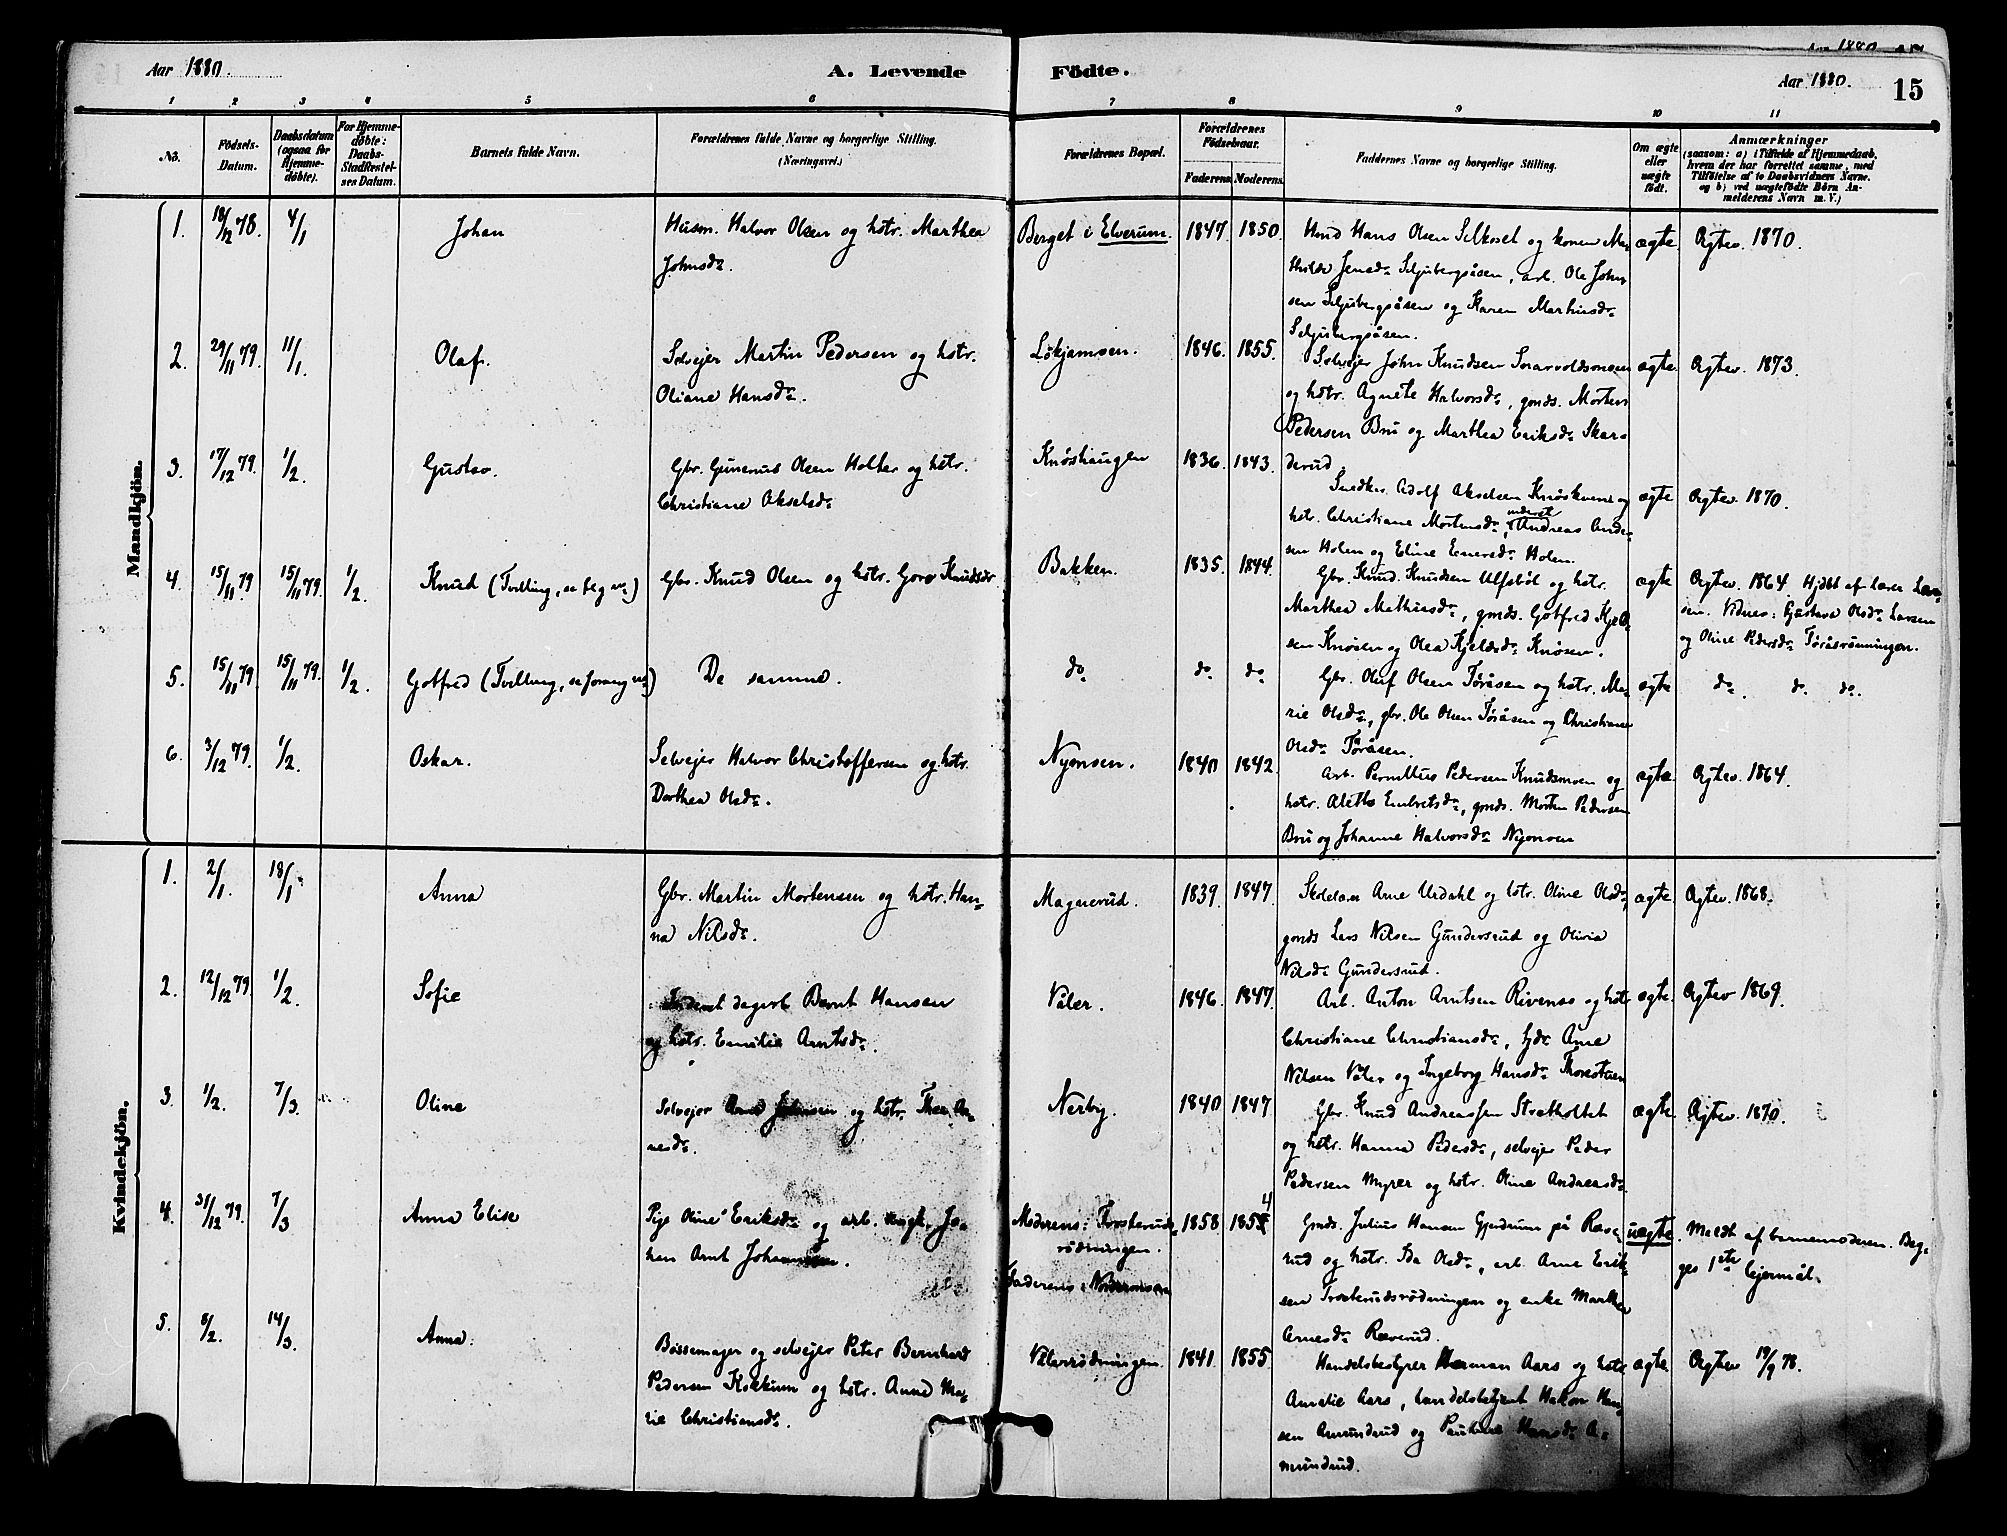 Aar 1880.
A. Levende Födte.
Aar 1880.
Aar 1880.
15
1 2 3 4 5 6 7 8 9 10 11
No.
Födsels-
Datum.
Daabsdatum
(ogsaa for
Hjemme-
döbte).
For Hjemme-
döbte:
Daabs-
Stadfæstel-
ses Datum.
Barnets fulde Navn.
Forældrenes fulde Navne og borgerlige Stilling.
(Næringsvei.)
Forældrenes Bopæl.
Forældrenes
Födselsaar.
Faderens. Moderens.
Faddernes Navne og borgerlige Stilling.
Om ægte
eller
uægte
födt.
Anmærkninger
(saasom: a) i Tilfælde af Hjemmedaab,
hvem der har forrettet samme, med
Tilföielse af to Daabsvidners Navne.
og b) ved uægtefödte Börn An-
melderens Navn m. V.)
Mandkjön.
1. 18/12 78. 4/1 Johan
Husm. Halvor Olsen og hstr. Marthea
Johnsdr.
Berget i Elverum. 1847. 1850.
Hmd Hans Olsen Silkoset og konen Ma-
thilde Jensdr. Seljubergsåsen, arb. Ole John
sen Seljubergsåsen og Karen Martinsdr.
Seljubergsåsen.
ægte Ægtev. 1870.
2. 29/11 79. 11/1. Olaf.
Selvejer Martin Pedersen og hstr.
Oliane Hansdr.
Lökjamoen. 1846. 1855.
Selvejer John Knudsen
og hstr. Agnete Halvorsdr, gmds. Morten
Pedersen Bru og Marthea Eriksdr. Skar-
derud.
ægte. Ægtev. 1873.
3. 17/12 79. 1/2. Gustav.
Gbr. Gunerius Olsen Holter og hstr.
Christiane Akselsdr.
Knöshaugen 1836. 1843.
Snedker Adolf Akselsen Knöskvern og
hstr. Christiane Mortensdr, inderst Andreas Ander-
sen Holen og Eline Enersdr. Holen.
ægte Ægtev. 1870.
4. 15/11 79 15/11 79. 1/2. Knud (Tvilling, se flg no.)
Gbr. Knud Olsen og hstr. Goro Knudsdr
Bakken. 1835. 1844.
Gbr. Knud Knudsen Ulfsböl og hstr.
Marthea Mathiasdr, gmds. Gotfred Kjeld-
sen Knösen og Olea Kjeldsdr. Knösen.
ægte Ægtev. 1864. Hjdbt af lærer Lar-
sen. Vidner: Gustava Olsdr. Larsen
og Oline Pedersdr. Töråsrönningen.
5. 15/11 79. 15/11 79. 1/2. Gotfred (Tvilling, se forang no)
De samme.
do do do
Gbr. Oluf Olsen Töråsen og hstr. Ma-
rie Olsdr, gbr. Ole Olsen Töråsen og Christiane
Olsdr. Töråsen.
ægte do. do. do.
6. 3/12 79. 1/2. Oskar.
Selvejer Halvor Christoffersen og hstr.
Dorthea Olsdr.
Nymoen. 1840 1842.
Arb. Pernillus Pedersen Knudsmoen og
hstr. Alette Embretsdr, gmds. Morten Pedersen
Bru og Johanne Halvorsdr. Nymoen
ægte Ægtev. 1864.
Kvindekjön.
1. 2/1. 18/1. Anna
Gbr. Martin Mortensen og hstr. Han-
na Nilsdr.
Magnerud. 1839. 1847.
Skolelær Arne Urdahl og hstr. Oline Olsdr,
gmds Lars Nilsen Gundersrud og Olivia
Nilsdr. Gundersrud.
ægte. Ægtev. 1868.
2. 12/12 79. 1/2. Sofie
Inderst dagarb Bernt Hansen
og hstr. Emilie Arntsdr.
Våler. 1846. 1847.
Arb. Anton Arntsen Rivenæs og hstr
Christiane Christiansdr, Arne
Nilsen Våler og Ingeborg Hansdr. Thorestuen
ægte. Ægtev 1869.
3. 1/2. 7/3. Oline
Selvejer Arne Johnsen og hstr. Thea Ar-
nesdr.
Nerby. 1840 1847
Gbr. Knud Andreassen Strætholtet
og hstr. Hanna Pedersdr, selvejer Peder
Pedersen Myrer og hstr. Oline Andreasdr.
ægte Ægtev. 1870.
4. 31/12 79. 7/3 Anna Elise
Pige Oline Eriksdr. og arb. ungk. Jo-
han Arnt Johansen.
Moderens: Trosterud-
rödningen.
Faderens: Nordmoen
1858 1854
Gmds. Julius Hansen Gjendrum på Ræve-
rud og hstr. Ida Olsdr, arb. Arne Erik-
sen Trosterudsrödningen og enke Marthea
Arnesdr. Ræverud.
uægte. Meldt af barnemoderen. Beg-
ges 1ste lejermål.
5. 6/2. 14/3. Anna.
Bössemager og selvejer Peter Bernhard
Pedersen Kokkum og hstr. Anne Ma-
rie Christiansdr.
Vålersrödningen. 1841. 1855
Handelsbestyrer Herman Aars og hstr
Amalie Aars, handelsbetjent Hakon Han-
sen Amundrud og Pauline Hansdr. A-
mundrud.
ægte Ægtev 19/9 78.